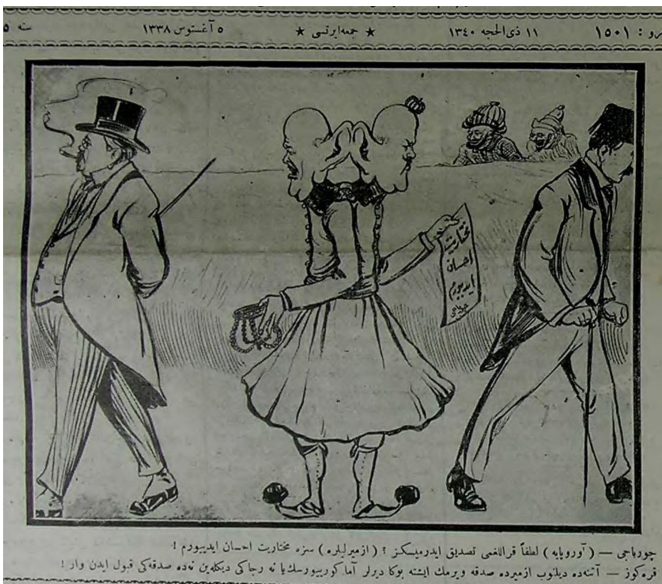 سنه ٥ ٥ آغستوس ١٣٣٨ ★ جمعه ايرتسى ★ ١١ ذى الحجه ١٣٤٠ نومرو : ١٥٠١
مختاريت
احسان
ايديورم
چورباجى — ( آوروپايه ) لطفاً قراللغمى تصديق ايدرميسكز ؟ ( ازميرليلره ) سزه مختاريت احسان ايديورم !
قره كوز — آتنه‌ده ديلنوب ازميرده صدقه ويرمك ايشته بوكا ديرلر آما كوريورسك يا نه رجاكى ديكله‌ين نه‌ده صدقه‌كى قبول ايدن وار !